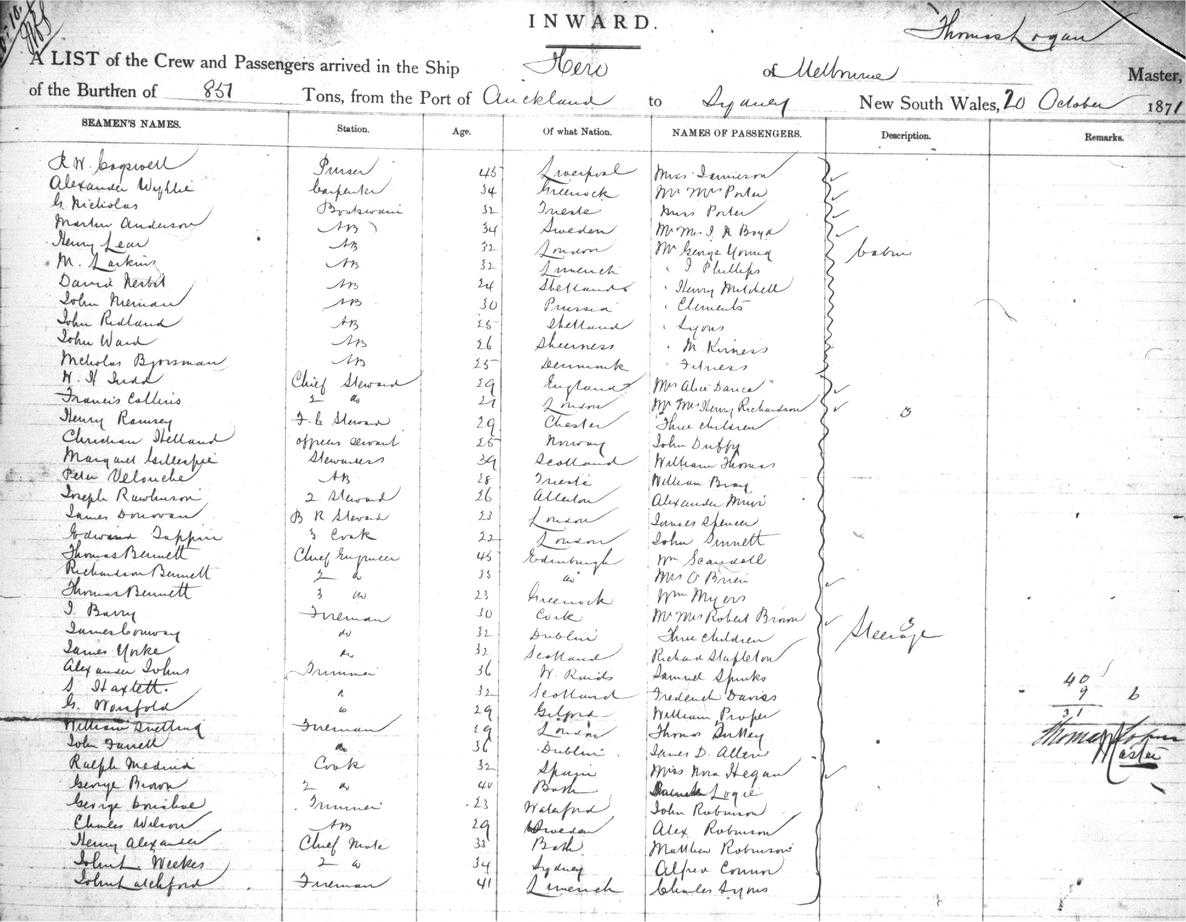 INWARD.
Thomas Logan
A LIST of the Crew and Passengers arrived in the Ship Hero of Melbourne Master,
of the Burthen of 851 Tons, from the Port of Auckland to Sydney New South Wales, 20 October 1871
SEAMEN'S NAMES. Station. Age. Of what Nation. NAMES OF PASSENGERS. Description. Remarks.
R W Cogswell Purser 45 Liverpool Miss Jamieson
Alexander Wyllie Carpenter 34 Greenock Mr Mrs Porter
G. Nicholas Boatswain 32 Trieste Miss Porter
Martin Anderson AB 34 Sweden Mr Mrs J A Boyd
Henry Lear AB 32 London Mr George Young Cabin
M. Larkins AB 32 Limerick " J Phillips
David Nesbit AB 24 Shetlands " Henry Mitchell
John Nieman AB 30 Prussia " Clements
John Ridland AB 25 Shetland " Lyons
John Ward AB 26 Sheerness " M Kirness
Nicholas Bjorsman AB 25 Denmark "
W. H Judd Chief Steward 29 England Mrs Alice Dance
Francis Collins 2 do 27 London Mr Mrs Henry Richardson
Henry Ramsey F. C Steward 29 Chester Three children
Christian Helland officers servant 25 Norway John Duffy
Margaret Gillespie Stewardess 39 Scotland William Thomas
Peter Velouche AB 28 Trieste William Bray
Joseph Rawlinson 2 Steward 26 Allerton Alexander Muir
James Donovan B R Steward 23 London James Spencer
Edward Tappin 3 Cook 22 London John Sinnett
Thomas Bennett Chief Engineer 45 Edinburgh Wm Scandoll
Richardson Bennett 2 do 35 do Mrs O Brien
Thomas Bennett 3 do 23 Greenock Wm Myers
J. Barry Fireman 30 Cork Mr Mrs Robert Brown
James Conway do 32 Dublin Three Children 3 Steerage
James Yorke do 32 Scotland Richard Stapleton
Alexander Johns Trimmer 36 W. Indies Samuel Spinks
S Haxlett. do 32 Scotland Frederick Davies
G. Worsfold do 29 Gilford William Proper
William Snelling Fireman 29 London Thomas
John Farrell do 36 Dublin James D. Allen
Ralph Medina Cook 32 Spain Miss Nora Hegan
George Brown 2 do 40 Bath Logie
George Donohoe Trimmer 23 Waterford John Robinson
Charles Wilson AB 29 Sweden Alex Robinson
Henry Alexander Chief Mate 33 Bath Matthew Robinson
John L Weekes 2 do 34 Sydney Alfred Connor
John Latchford Fireman 41 Limerick Charles Lyons
40
9 6
31
Thomas Logan
Master